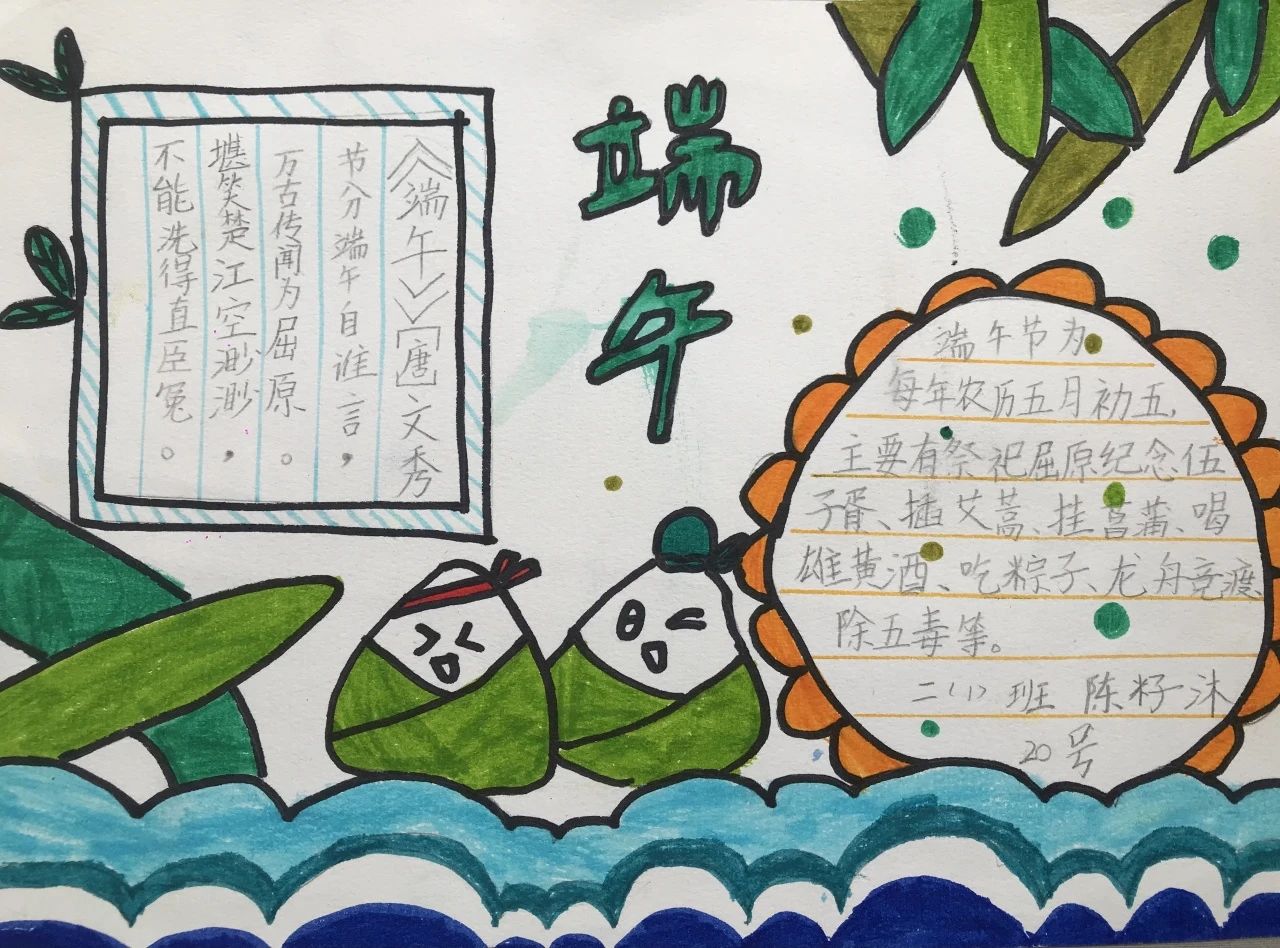 端午
《端午》[唐]文秀
节分端午自谁言，
万古传闻为屈原。
堪笑楚江空渺渺，
不能洗得直臣冤。
端午节为
每年农历五月初五，
主要有祭祀屈原纪念伍
子胥、插艾蒿、挂菖蒲、喝
雄黄酒、吃粽子、龙舟竞渡、
除五毒等。
二（1）班 陈籽沐
20号